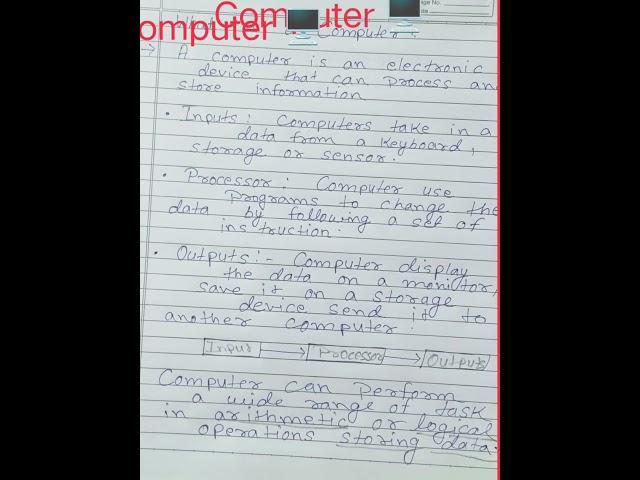 Computer
omputer
Computer :
A computer is an electronic
device that can process an
store information
• Inputs : Computers take in a
data from a keyboard,
storage or sensor.
• Processor : Computer use
Programs to change the
data by following a set of
instruction.
• Outputs :- Computer display
the data on a monitor,
save it on a storage
device send it to
another computer.
Input → Processor → Outputs
Computer can perform
a wide range of task
in arithmetic or logical
operations storing data.